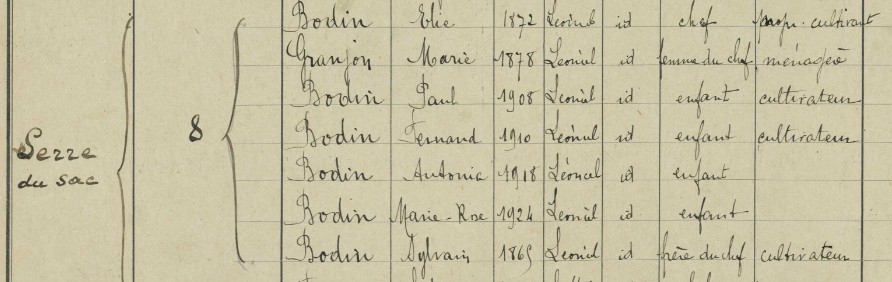 Bodin Elie 1872 Léoncel id chef propr. cultivant
Granjon Marie 1878 Léoncel id femme du chef ménagère
Bodin Paul 1908 Léoncel id enfant cultivateur
8 Bodin Fernand 1910 Léoncel id enfant cultivateur
Serre
du sac
Bodin Antonia 1918 Léoncel id enfant
Bodin Marie-Rose 1924 Léoncel id enfant
Bodin Sylvain 1865 Léoncel id frère du chef cultivateur